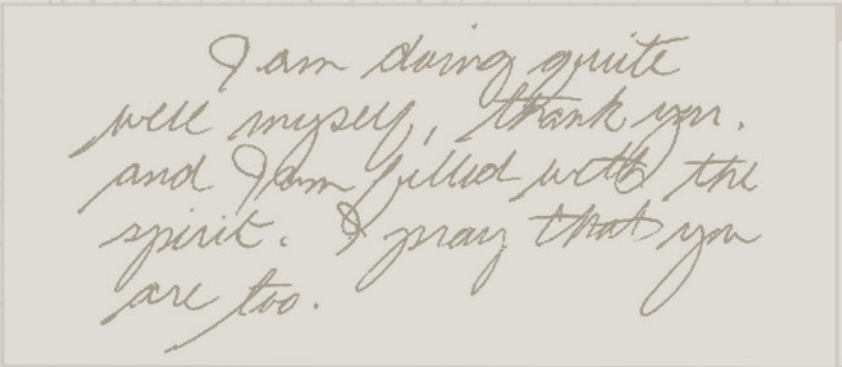 I am doing quite
well myself, thank you.
and I am filled with the
spirit. I pray that you
are too.